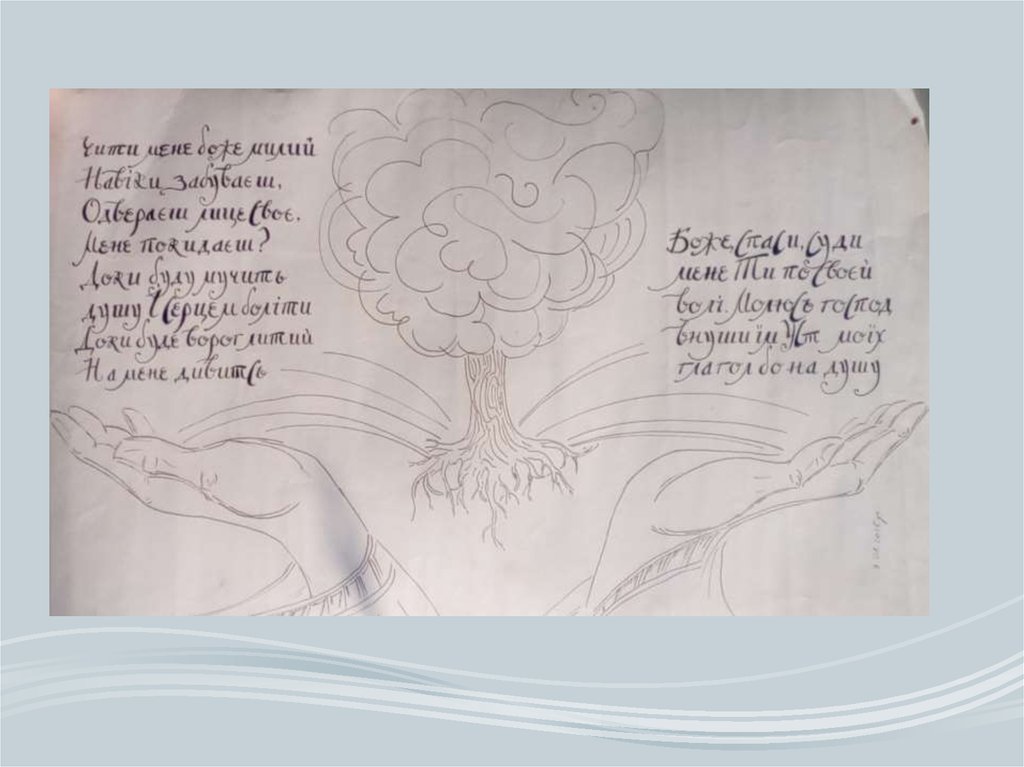 Чити мене боже милий
Навіки забуваєш,
Одвераєш лице своє,
Мене покидаєш?
Доки буду мучить
душу І серцем боліти
Доки буде ворог литий
На мене дивитсь
Боже, спаси, суди
мене Ти по своєй
волі. Молюсь господ
внуши їм Уст моїх
глагол бо на душу